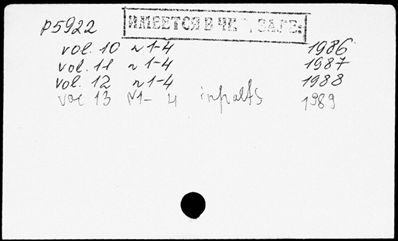 P5922
ИМЕЕТСЯ В ЧИТ. ЗАЛЕ
vol. 10 n 1-4 1986
vol. 11 n 1-4 1987
vol. 12 n 1-4 1988
vol 13 N1- 4 1989